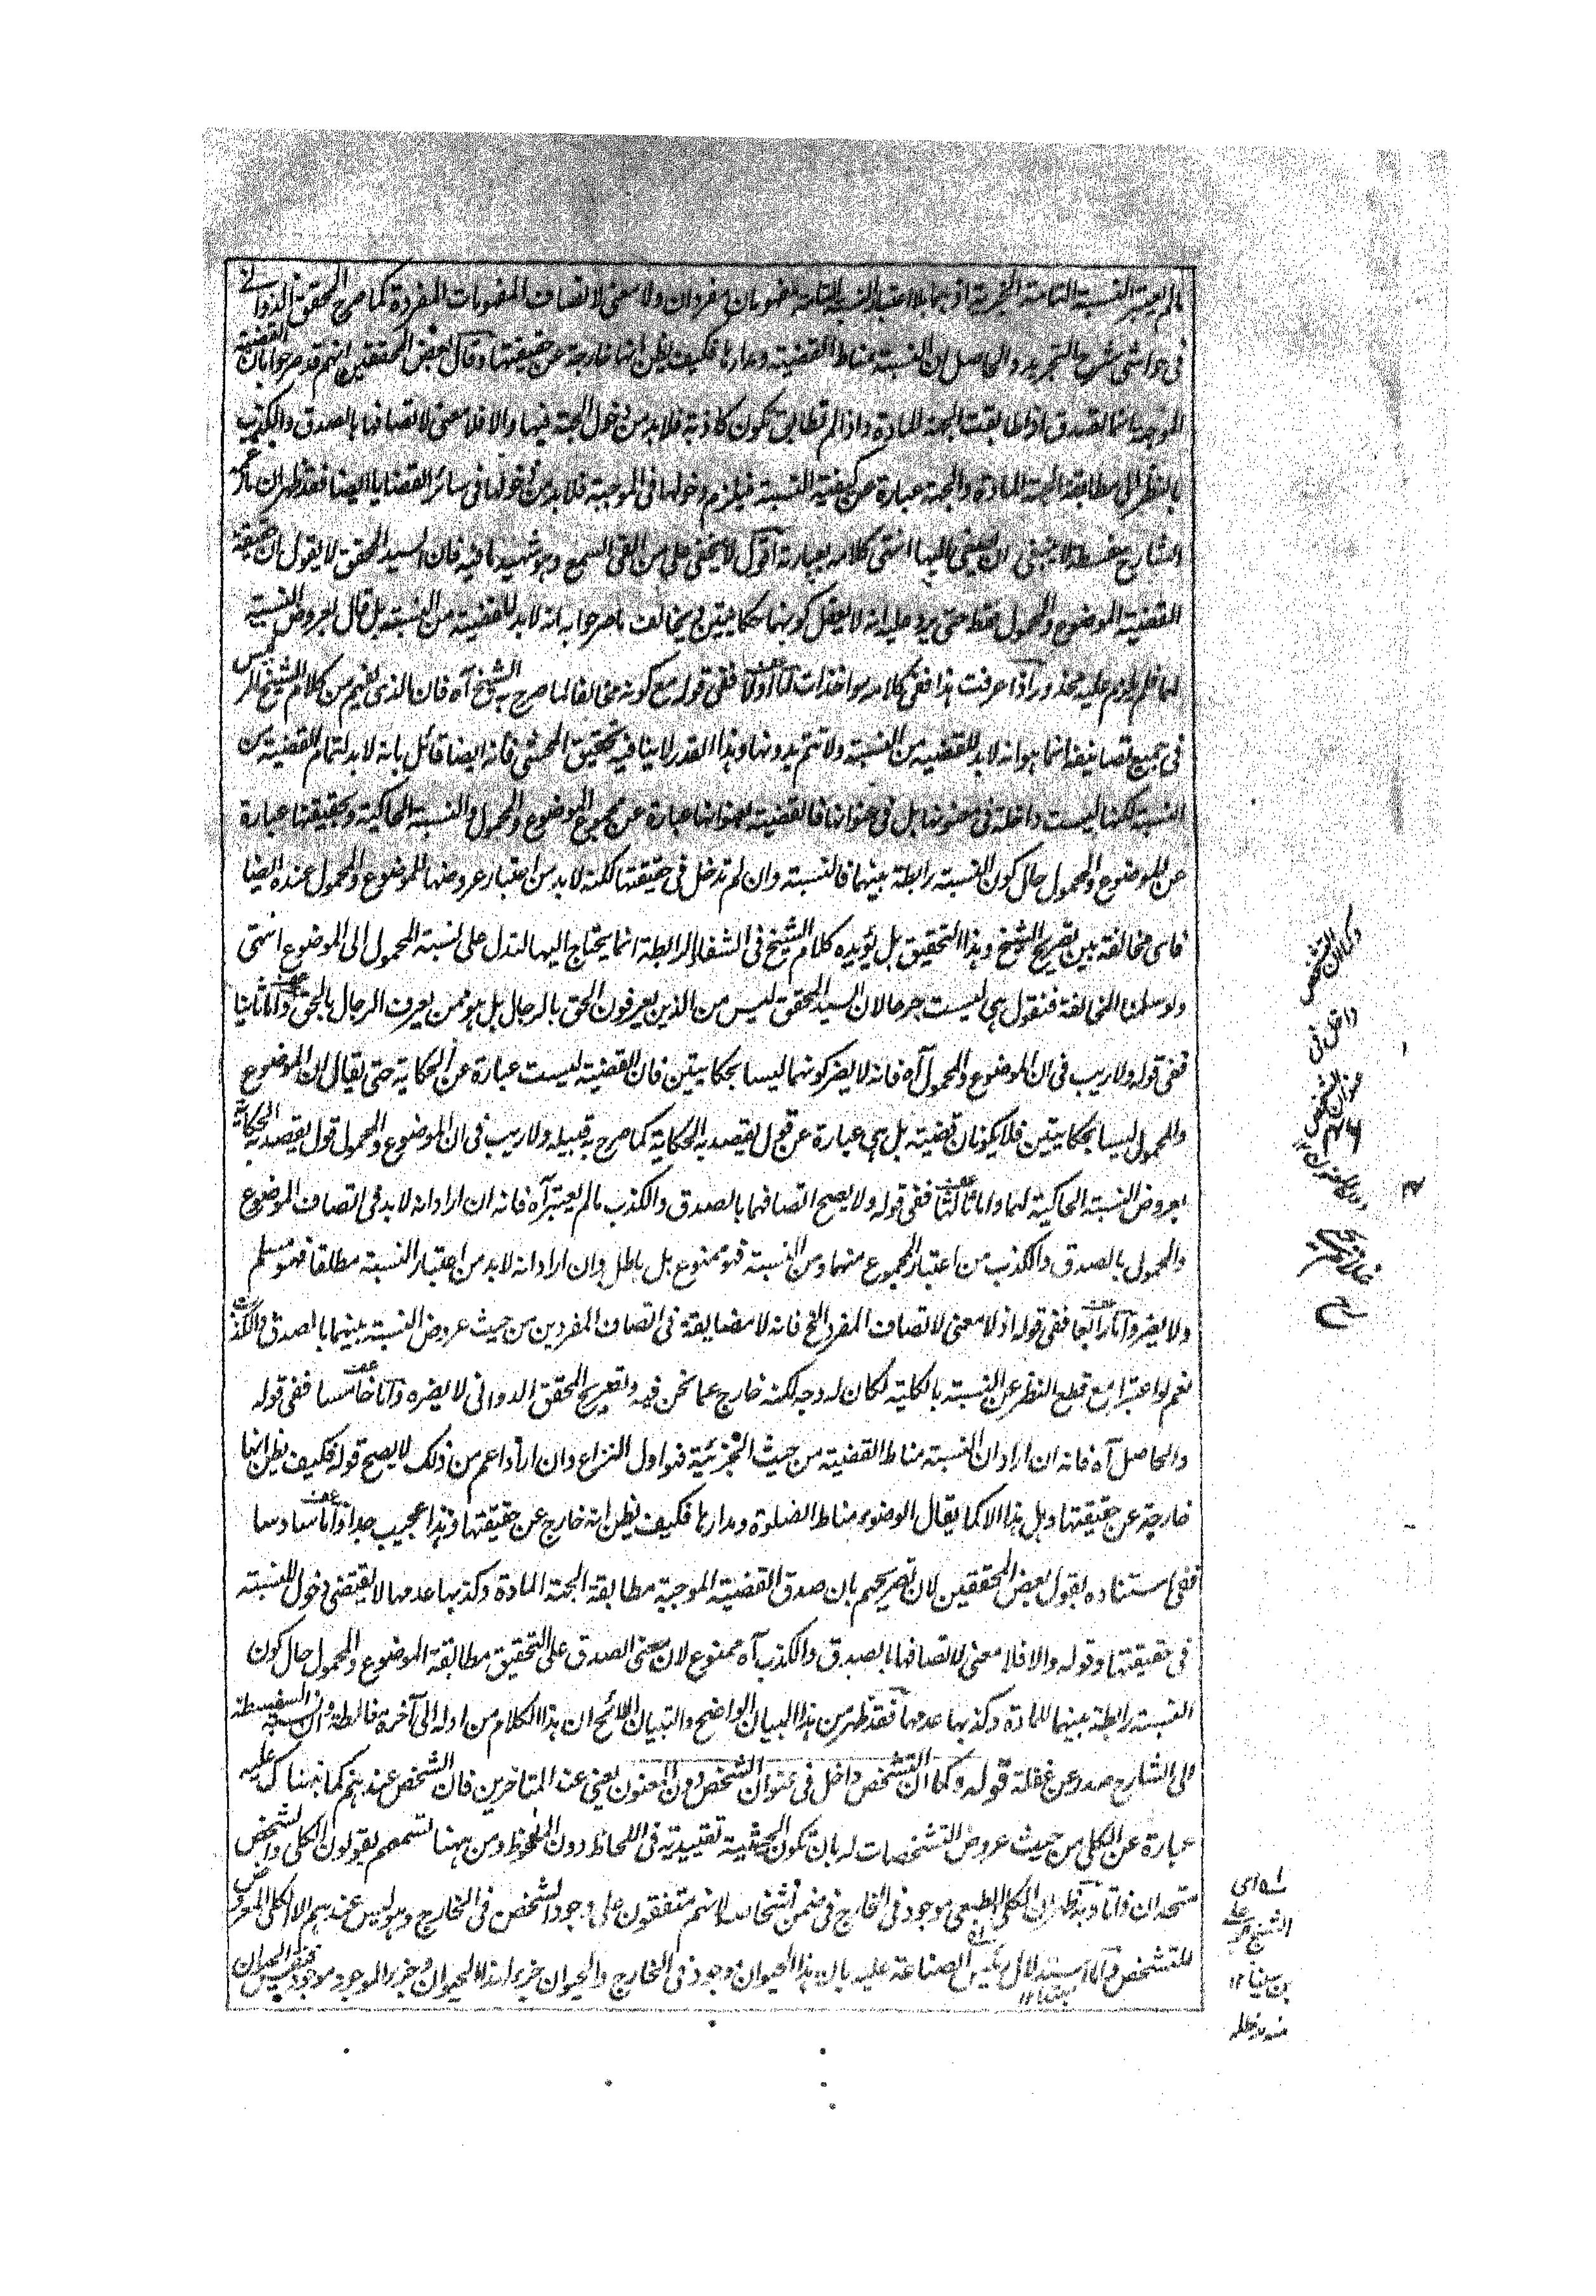 مالم يعتبر النسبة التامة الخبرية اذ هما بلا اعتبار النسبة التامة مفهومان مفردان ولا معنى لاتصاف المفهومات المفردة كما صرح المحقق الدواني
فى حواشى شرح التجريد والحاصل ان النسبة مناط القضية ومدارها فكيف يظن انها خارجة عن حقيقتها وقال بعض المحققين انهم قد صرحوا بان القضية
الموجهة انما تصدق اذا طابقت الجهة للمادة واذا لم تطابق تكون كاذبة فلابد من دخول الجهة فيها والا فلا معنى لاتصافها بالصدق والكذب
بالنظر الى مطابقة الجهة للمادة والجهة عبارة عن كيفية النسبة فيلزم دخولها فى الموجهة فلابد من دخولها فى سائر القضايا ايضا فقد ظهر ان ما ذكره
الشارح سفسطة لا ينبغى ان يصغى اليها انتهى كلامه بعبارته اقول لا يخفى على من القى السمع وهو شهيد ما فيه فان السيد المحقق لا يقول ان حقيقة
القضية الموضوع والمحمول فقط حتى يرد عليه انه لا يعقل كونهما حكايتين ويخالف ما صرحوا به انه لابد للقضية من النسبة بل قال بعروض النسبة
لهما فلم يلزم عليه محذور واذا عرفت هذا ففى كلامه مواخذات اما اولا ففى قوله مع كونه مخالفا لما صرح به الشيخ آه فان الذى يفهم من كلام الشيخ الرئيس
فى جميع تصانيفه انما هو انه لابد للقضية من النسبة ولا تتم بدونها وهذا القدر لا ينافيه تحقيق المحشى فانه ايضا قائل بانه لابد لتمام القضية من
النسبة لكنها ليست داخلة فى معنونها بل فى عنوانها فالقضية بعنوانها عبارة عن مجموع الموضوع والمحمول والنسبة الحاكية وبحقيقتها عبارة
عن الموضوع والمحمول حال كون النسبة رابطة بينهما فالنسبة وان لم تدخل فى حقيقتها لكنه لابد من اعتبار عروضها للموضوع والمحمول عنده ايضا
فاى مخالفة بين تصريح الشيخ وهذا التحقيق بل يؤيده كلام الشيخ فى الشفاء الرابطة انما يحتاج اليها لتدل على نسبة المحمول الى الموضوع انتهى
ولو سلمنا المخالفة فنقول هى ليست جرحا لان السيد المحقق ليس من الذين يعرفون الحق بالرجال بل هو ممن يعرف الرجال بالحق واما ثانيا
ففى قوله ولا ريب فى ان الموضوع والمحمول آه فانه لا يضر كونهما ليسا بحكايتين فان القضية ليست عبارة عن الحكاية حتى يقال ان الموضوع
والمحمول ليسا بحكايتين فلا يكونان قضية بل هى عبارة عن قول يقصد به الحكاية كما صرح به قبيله ولا ريب فى ان الموضوع والمحمول قول يقصد به الحكاية
بعروض النسبة الحاكية لهما واما ثالثا ففى قوله ولا يصح اتصافهما بالصدق والكذب مالم يعتبر آه فانه ان اراد انه لابد فى اتصاف الموضوع
والمحمول بالصدق والكذب من اعتبار المجموع منهما ومن النسبة فهو ممنوع بل باطل وان اراد انه لابد من اعتبار النسبة مطلقا فهو مسلم
ولا يضر واما رابعا ففى قوله اذ لا معنى لاتصاف المفرد الخ فانه لا مضايقة فى اتصاف المفردين من حيث عروض النسبة بينهما بالصدق والكذب
نعم لو اعتبرا مع قطع النظر عن النسبة بالكلية لكان له وجه لكنه خارج عما نحن فيه وتصريح المحقق الدوانى لا يضره واما خامسا ففى قوله
والحاصل آه فانه ان اراد ان النسبة مناط القضية من حيث الجزئية فهو اول النزاع وان اراد اعم من ذلك لا يصح قوله فكيف يظن انها
خارجة عن حقيقتها وهل هذا الا كما يقال الوضوء مناط الصلوة ومدارها فكيف يظن انه خارج عن حقيقتها وهذا عجيب جدا واما سادسا
ففى استناده بقول بعض المحققين لان تصريحهم بان صدق القضية الموجهة مطابقة الجهة المادة وكذبها عدمها لا يقتضى دخول النسبة
فى حقيقتها وقوله والا فلا معنى لاتصافها بالصدق والكذب آه ممنوع لان معنى الصدق على التحقيق مطابقة الموضوع والمحمول حال كون
النسبة رابطة بينهما للمادة وكذبها عدمها فقد ظهر من هذا البيان الواضح والتبيان اللائح ان هذا الكلام من اوله الى آخره غالطة وان نسبة السفسطة
الى الشارح صدر عن غفلة قوله وكما ان التشخص داخل فى عنوان الشخص دون المعنون يعنى عند المتاخرين فان الشخص عندهم كما نبهناك عليه
عبارة عن الكلى من حيث عروض التشخصات له بان تكون الحيثية تقييدية فى اللحاظ دون الملحوظ ومن ههنا تسمعهم يقولون الكلى والشخص
متحدان ذاتا وبه ظهر ان الكلى الطبعى موجود فى الخارج فى ضمن اشخاصه لانهم متفقون على وجود الشخص فى الخارج وهو ليس عندهم الا الكلى المعروض
للتشخص واما استدلال رئيس الصناعة عليه بان هذا الحيوان موجود فى الخارج والحيوان جزء لهذا الحيوان وجزء الموجود موجود فالحيوان
وكما ان التشخص
داخل فى
عنوان الشخص
دون المعنون
اى
الشيخ بو على
بن سينا ١٢
منه مد ظله